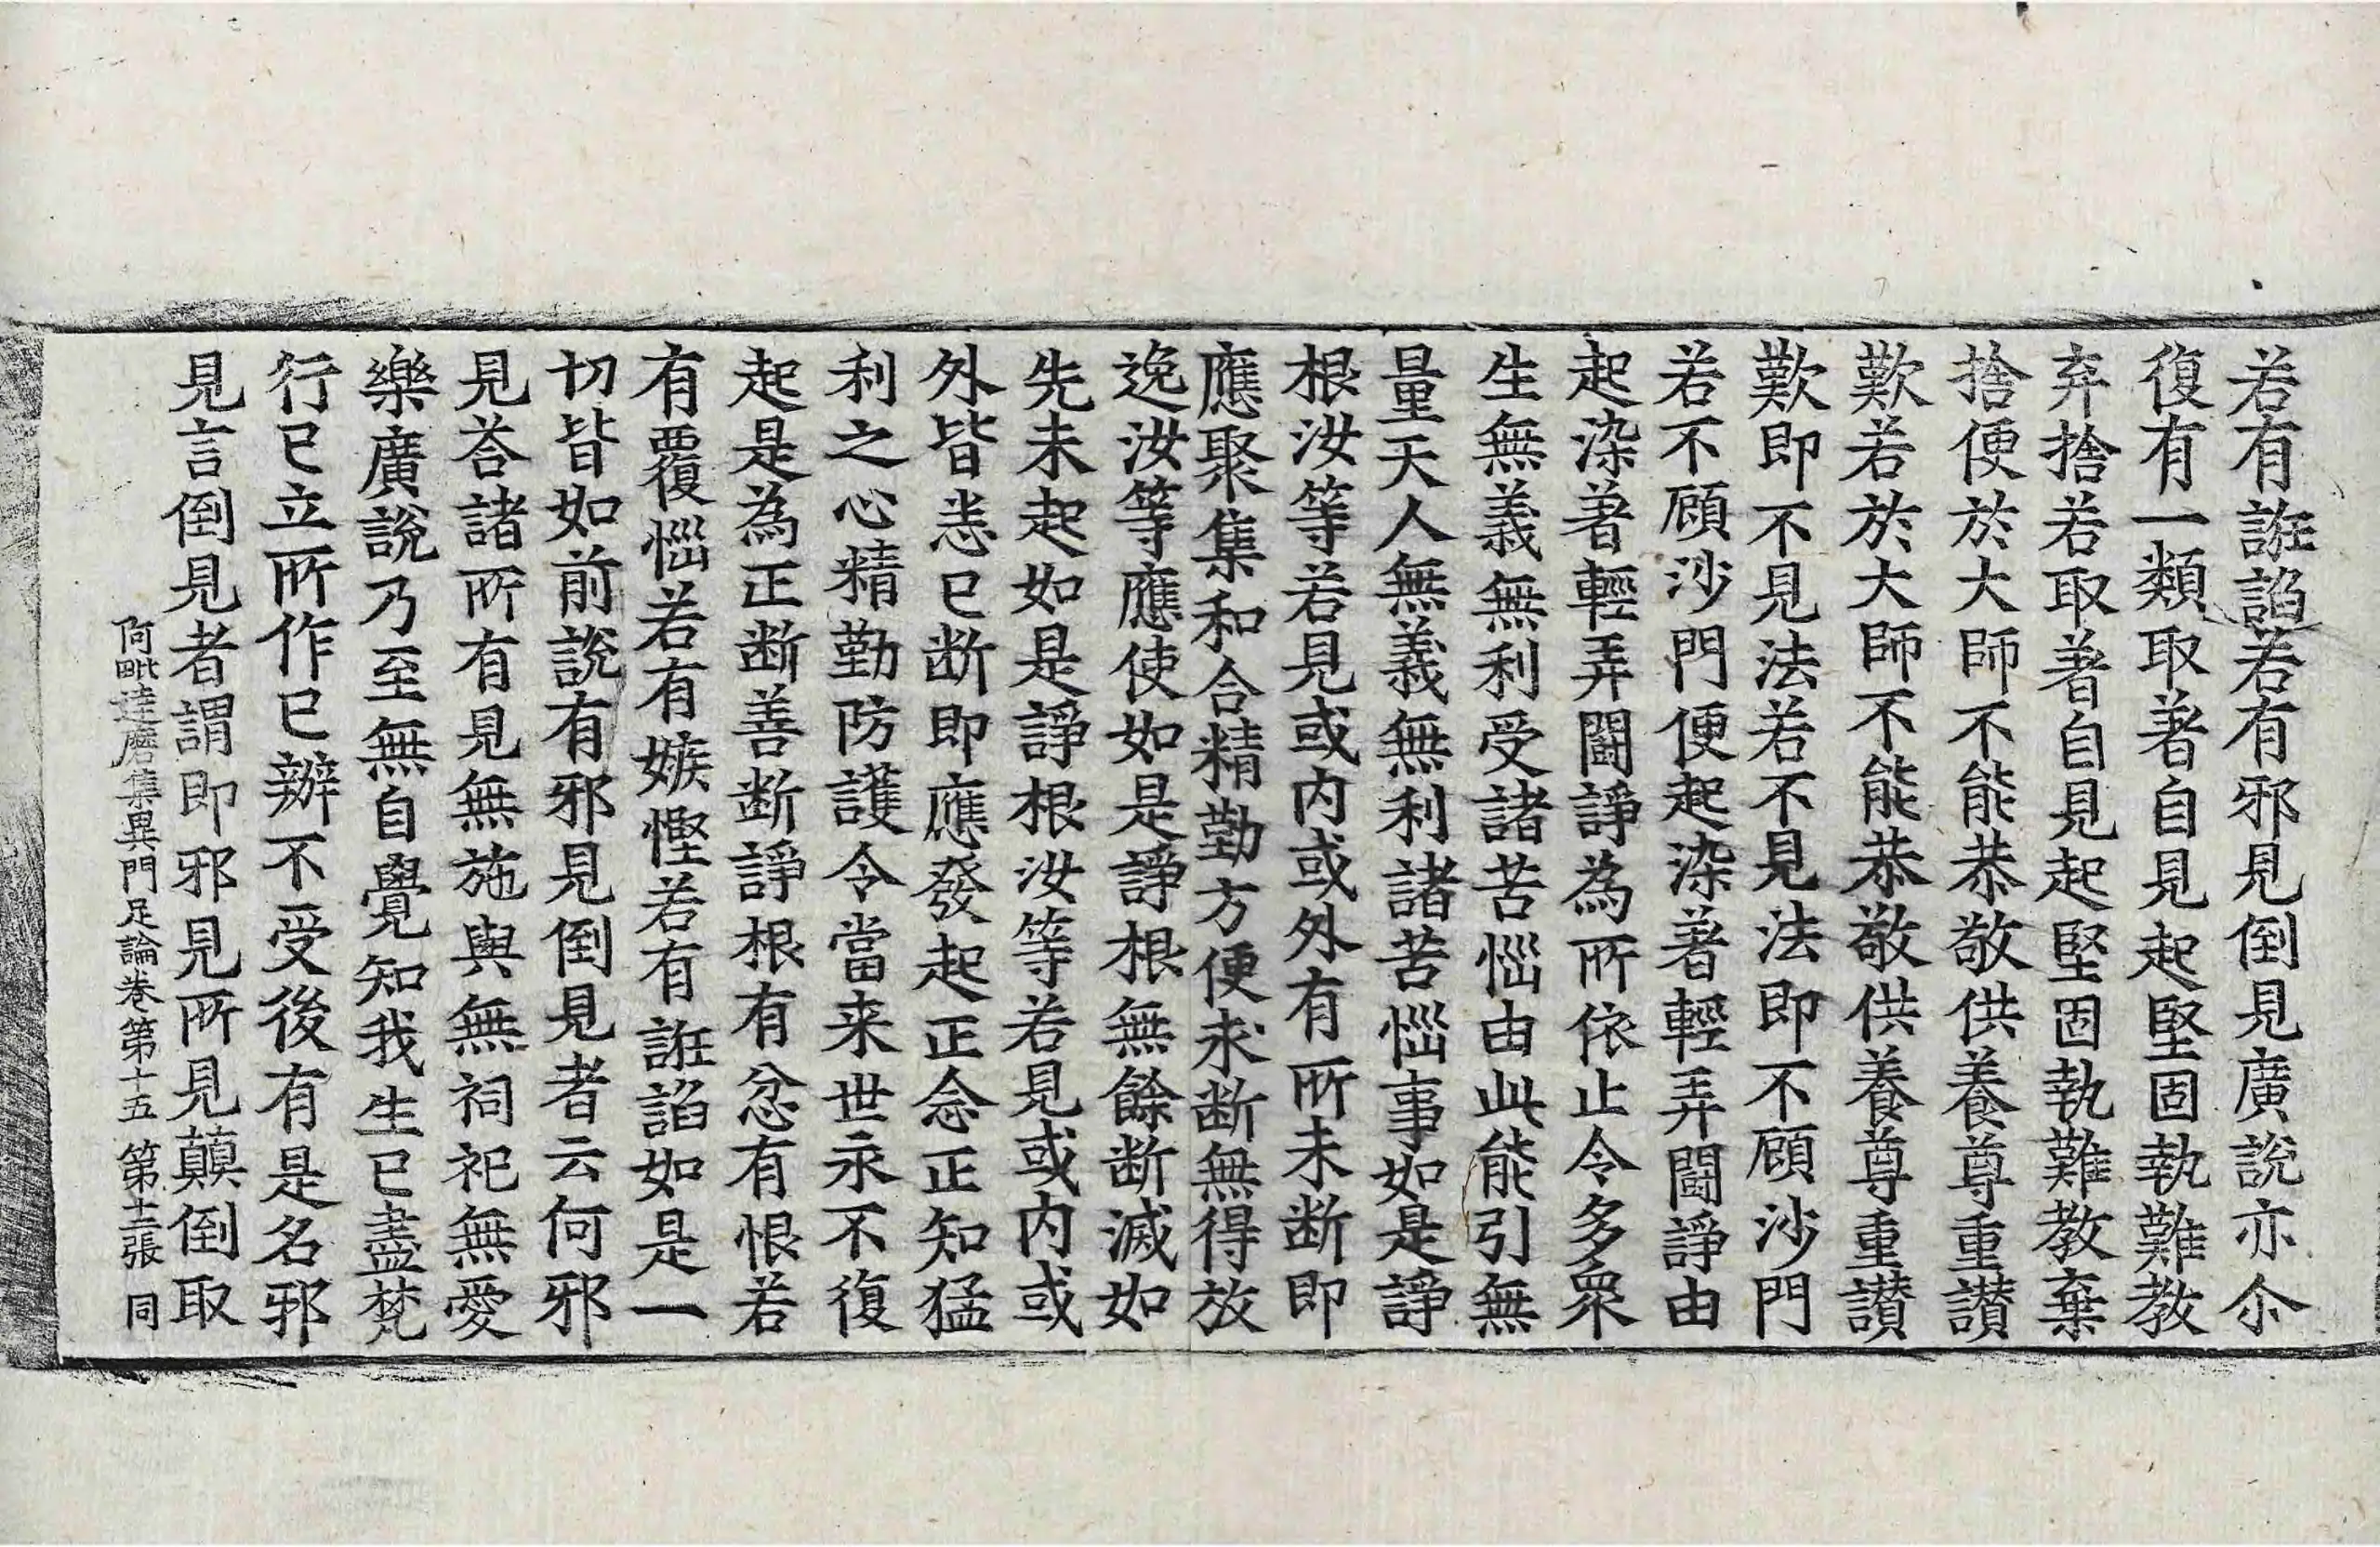 若有誑諂若有邪見倒見廣說亦尒
復有一類取著自見起堅固執難教
弃捨若取著自見起堅固執難教棄
捨便於大師不能恭敬供養尊重讃
歎若於大師不能恭敬供養尊重讃
歎即不見法若不見法即不顧沙門
若不顧沙門便起染著輕弄鬪諍由
起染著輕弄鬪諍為所依止令多衆
生無義無利受諸苦惱由此能引無
量天人無義無利諸苦惱事如是諍
根汝等若見或内或外有所未断即
應聚集和合精勤方便求断無得放
逸汝等應使如是諍根無餘断滅如
先未起如是諍根汝等若見或内或
外皆悉已断即應發起正念正知猛
利之心精勤防護令當来世永不復
起是為正断善断諍根有忿有恨若
有覆惱若有嫉慳若有誑諂如是一
切皆如前說有邪見倒見者云何邪
見荅諸所有見無施與無祠祀無愛
樂廣說乃至無自覺知我生已盡梵
行已立所作已辦不受後有是名邪
見言倒見者謂即邪見所見顛倒取
阿毗達磨集異門足論卷第十五 第十二張 同